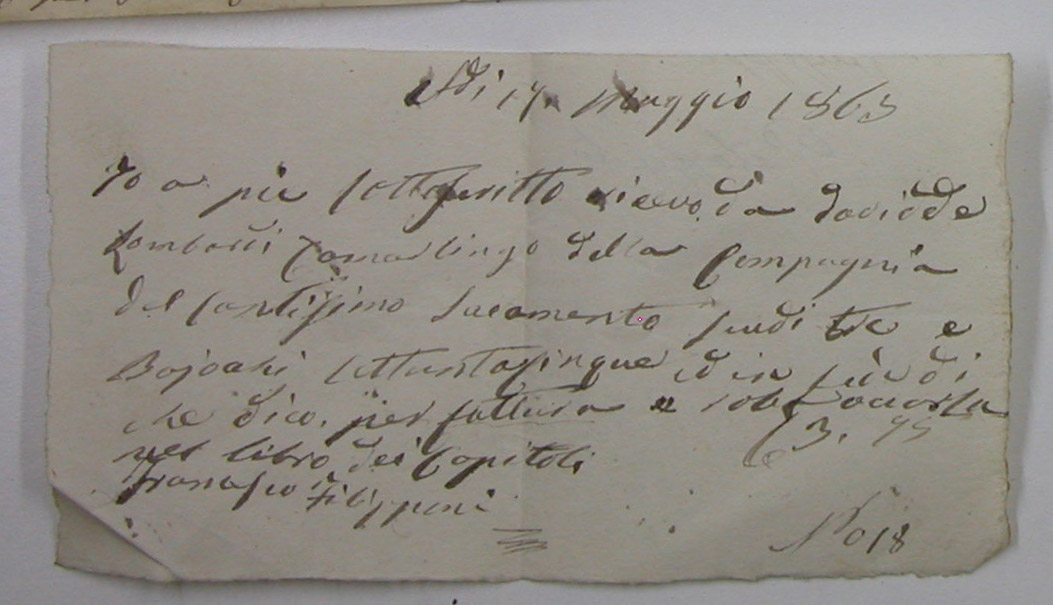 Adi 17. Maggio 1863
Io a piè sottoscritto ricevo da Davidde
Lombardi Camarlingo della Compagnia
del santissimo Sacramento scudi tre e
Bajochi settantacinque
che dico. per fattura e roba occorsa
nel libro dei Capitoli 3. 75
Francesco Filipponi
No 18